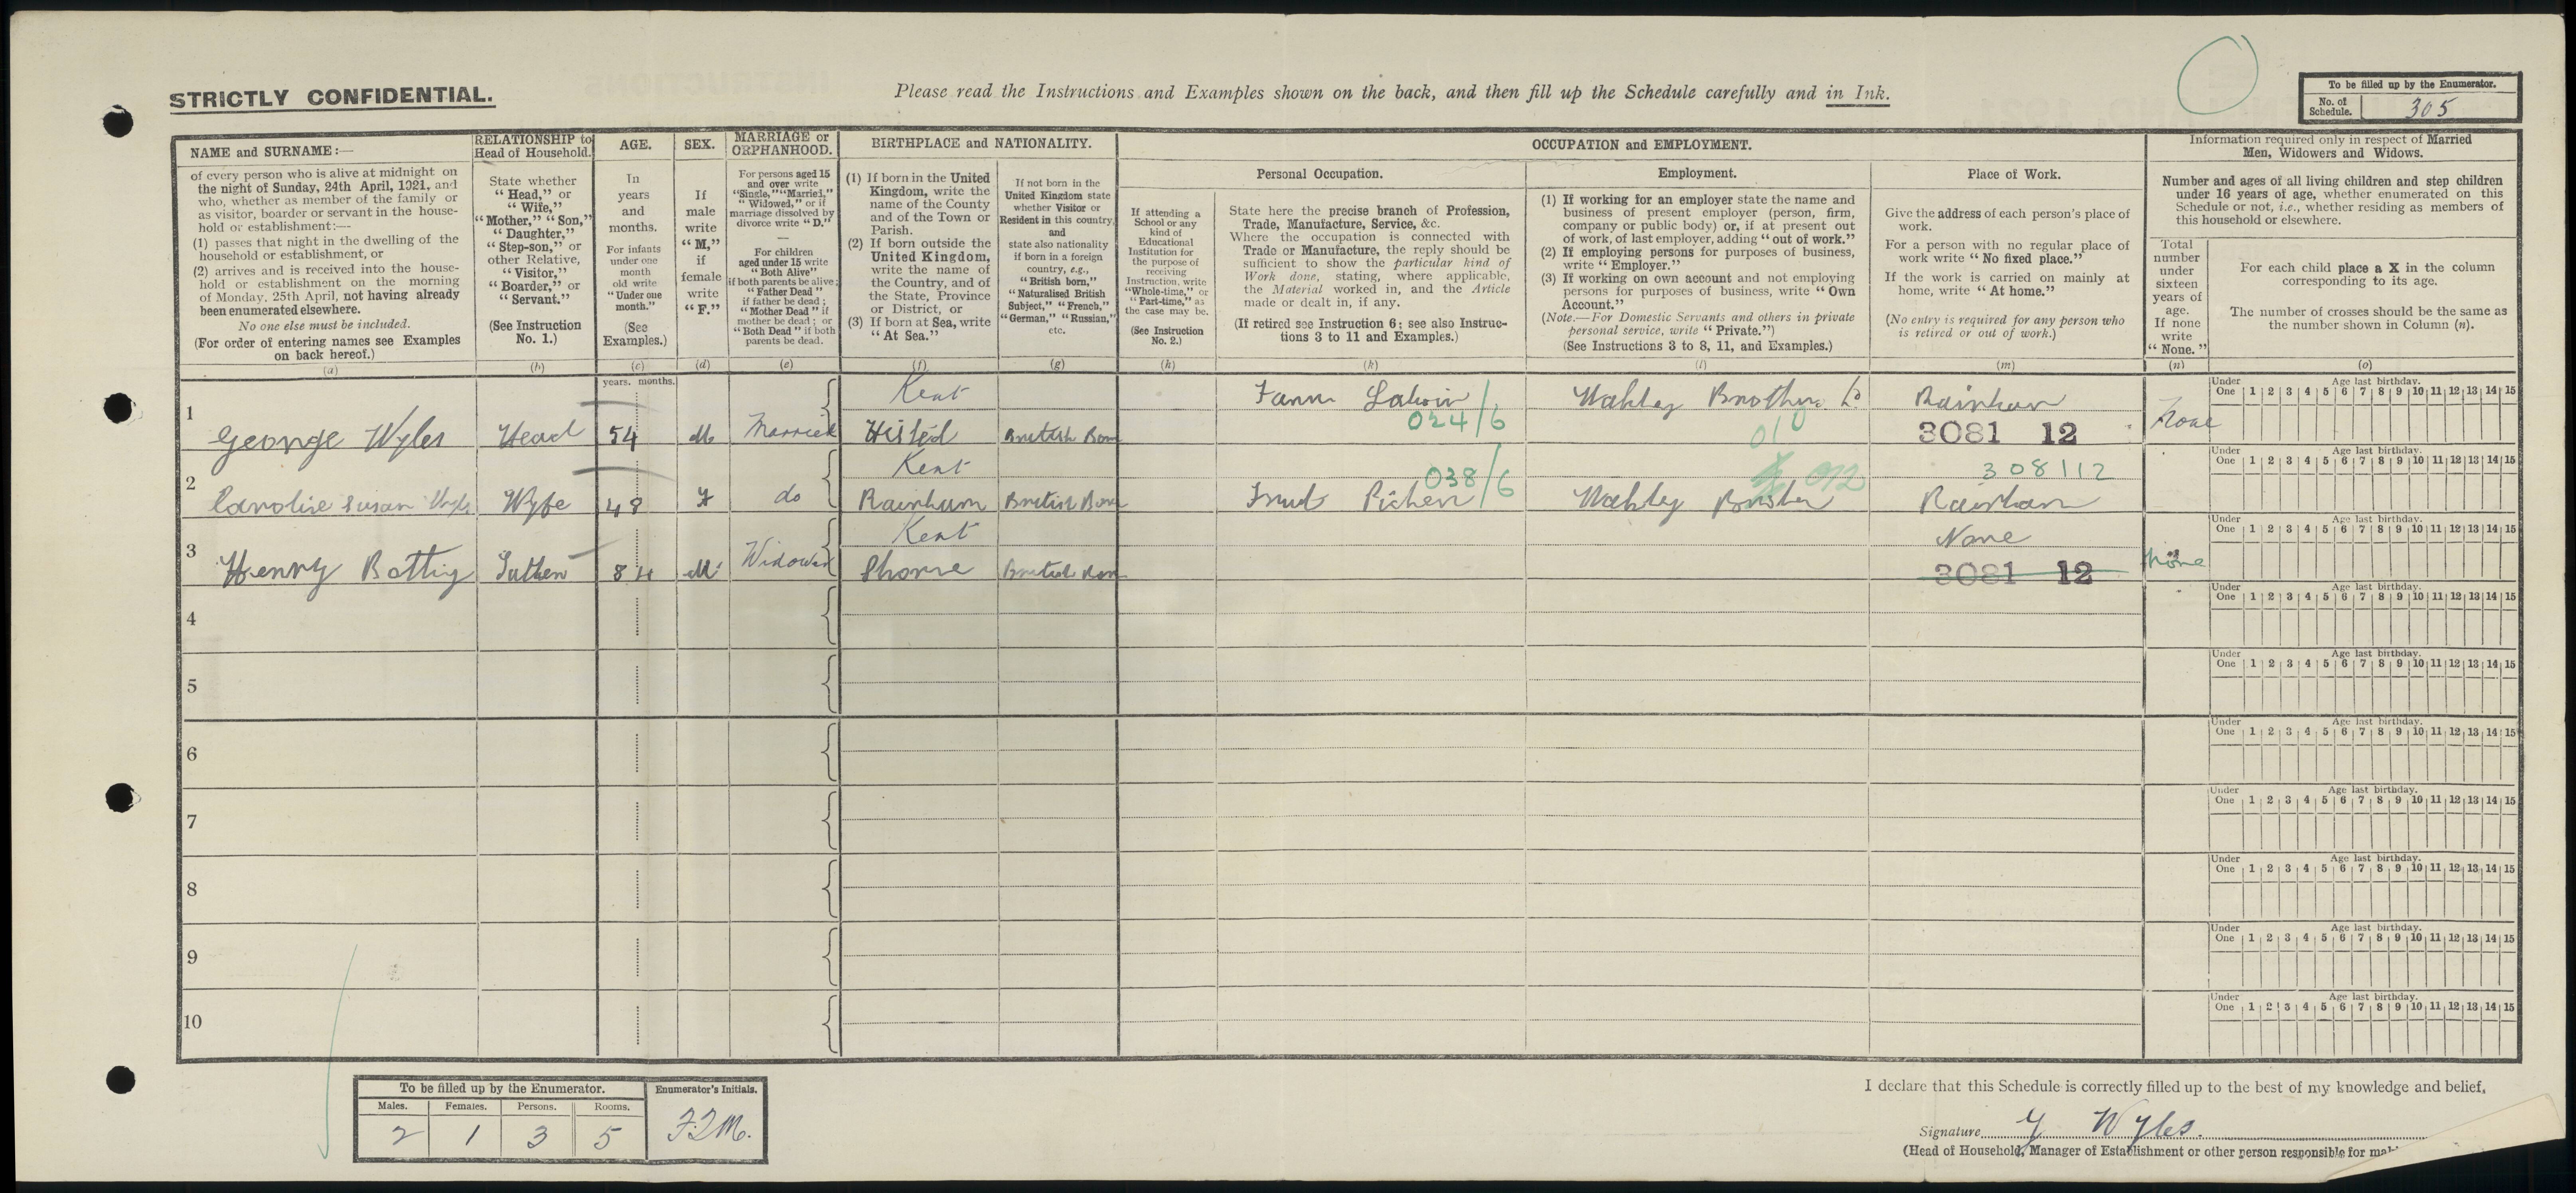 STRICTLY CONFIDENTIAL.
Please read the Instructions and Examples shown on the back, and then fill up the Schedule carefully and in Ink.
To be filled up by the Enumerator.
No. of Schedule. 305
NAME and SURNAME:—
of every person who is alive at midnight on
the night of Sunday, 24th April, 1921, and
who, whether as member of the family or
as visitor, boarder or servant in the house-
hold or establishment:—
(1) passes that night in the dwelling of the
household or establishment, or
(2) arrives and is received into the house-
hold or establishment on the morning
of Monday, 25th April, not having already
been enumerated elsewhere.
No one else must be included.
(For order of entering names see Examples
on back hereof.)
(a)
RELATIONSHIP to
Head of Household.
State whether
"Head," or
"Wife,"
"Mother," "Son,"
"Daughter,"
"Step-son," or
other Relative,
"Visitor,"
"Boarder," or
"Servant."
(See Instruction
No. 1.)
(b)
AGE.
In
years
and
months.
For infants
under one
month
old write
"Under one
month."
(See
Examples.)
(c)
SEX.
If
male
write
"M,"
if
female
write
"F."
(d)
MARRIAGE or
ORPHANHOOD.
For persons aged 15
and over write
"Single," "Married,"
"Widowed," or if
marriage dissolved by
divorce write "D."
For children
aged under 15 write
"Both Alive"
if both parents be alive;
"Father Dead"
if father be dead;
"Mother Dead" if
mother be dead; or
"Both Dead" if both
parents be dead.
(e)
BIRTHPLACE and NATIONALITY.
(1) If born in the United
Kingdom, write the
name of the County
and of the Town or
Parish.
(2) If born outside the
United Kingdom,
write the name of
the Country, and of
the State, Province
or District, or
(3) If born at Sea, write
"At Sea."
(f)
If not born in the
United Kingdom state
whether Visitor or
Resident in this country,
and
state also nationality
if born in a foreign
country, e.g.,
"British born,"
"Naturalised British
Subject," "French,"
"German," "Russian,"
etc.
(g)
OCCUPATION and EMPLOYMENT.
If attending a
School or any
kind of
Educational
Institution for
the purpose of
receiving
Instruction, write
"Whole-time," or
"Part-time," as
the case may be.
(See Instruction
No. 2.)
(h)
Personal Occupation.
State here the precise branch of Profession,
Trade, Manufacture, Service, &c.
Where the occupation is connected with
Trade or Manufacture, the reply should be
sufficient to show the particular kind of
Work done, stating, where applicable,
the Material worked in, and the Article
made or dealt in, if any.
(If retired see Instruction 6; see also Instruc-
tions 3 to 11 and Examples.)
(k)
Employment.
(1) If working for an employer state the name and
business of present employer (person, firm,
company or public body) or, if at present out
of work, of last employer, adding "out of work."
(2) If employing persons for purposes of business,
write "Employer."
(3) If working on own account and not employing
persons for purposes of business, write "Own
Account."
(Note.—For Domestic Servants and others in private
personal service, write "Private.")
(See Instructions 3 to 8, 11, and Examples.)
(l)
Place of Work.
Give the address of each person's place of
work.
For a person with no regular place of
work write "No fixed place."
If the work is carried on mainly at
home, write "At home."
(No entry is required for any person who
is retired or out of work.)
(m)
Information required only in respect of Married
Men, Widowers and Widows.
Number and ages of all living children and step children
under 16 years of age, whether enumerated on this
Schedule or not, i.e., whether residing as members of
this household or elsewhere.
Total
number
under
sixteen
years of
age.
If none
write
"None."
(n)
For each child place a X in the column
corresponding to its age.
The number of crosses should be the same as
the number shown in Column (n).
(o)
years. months.
Under One Age last birthday. 1 2 3 4 5 6 7 8 9 10 11 12 13 14 15
Kent Farm Wakley Brothers Rainham
024/6 010
1 George Wyles Head 54 M Married Histed British Born 3081 12 None
Under One Age last birthday. 1 2 3 4 5 6 7 8 9 10 11 12 13 14 15
Kent 038/6 012 308112
2 Caroline Susan Wyles Wyfe 48 F do Rainhum British Born Frut Picher Wakley Brother Rainham
Under One Age last birthday. 1 2 3 4 5 6 7 8 9 10 11 12 13 14 15
Kent None
3 Henry Botting Father 84 M Widower Shorne British Born 3081 12 None
Under One Age last birthday. 1 2 3 4 5 6 7 8 9 10 11 12 13 14 15
4
Under One Age last birthday. 1 2 3 4 5 6 7 8 9 10 11 12 13 14 15
5
Under One Age last birthday. 1 2 3 4 5 6 7 8 9 10 11 12 13 14 15
6
Under One Age last birthday. 1 2 3 4 5 6 7 8 9 10 11 12 13 14 15
7
Under One Age last birthday. 1 2 3 4 5 6 7 8 9 10 11 12 13 14 15
8
Under One Age last birthday. 1 2 3 4 5 6 7 8 9 10 11 12 13 14 15
9
Under One Age last birthday. 1 2 3 4 5 6 7 8 9 10 11 12 13 14 15
10
To be filled up by the Enumerator.
Males. Females. Persons. Rooms.
2 1 3 5
Enumerator's Initials.
I declare that this Schedule is correctly filled up to the best of my knowledge and belief,
Signature G Wyles.
(Head of Household, Manager of Establishment or other person responsible for